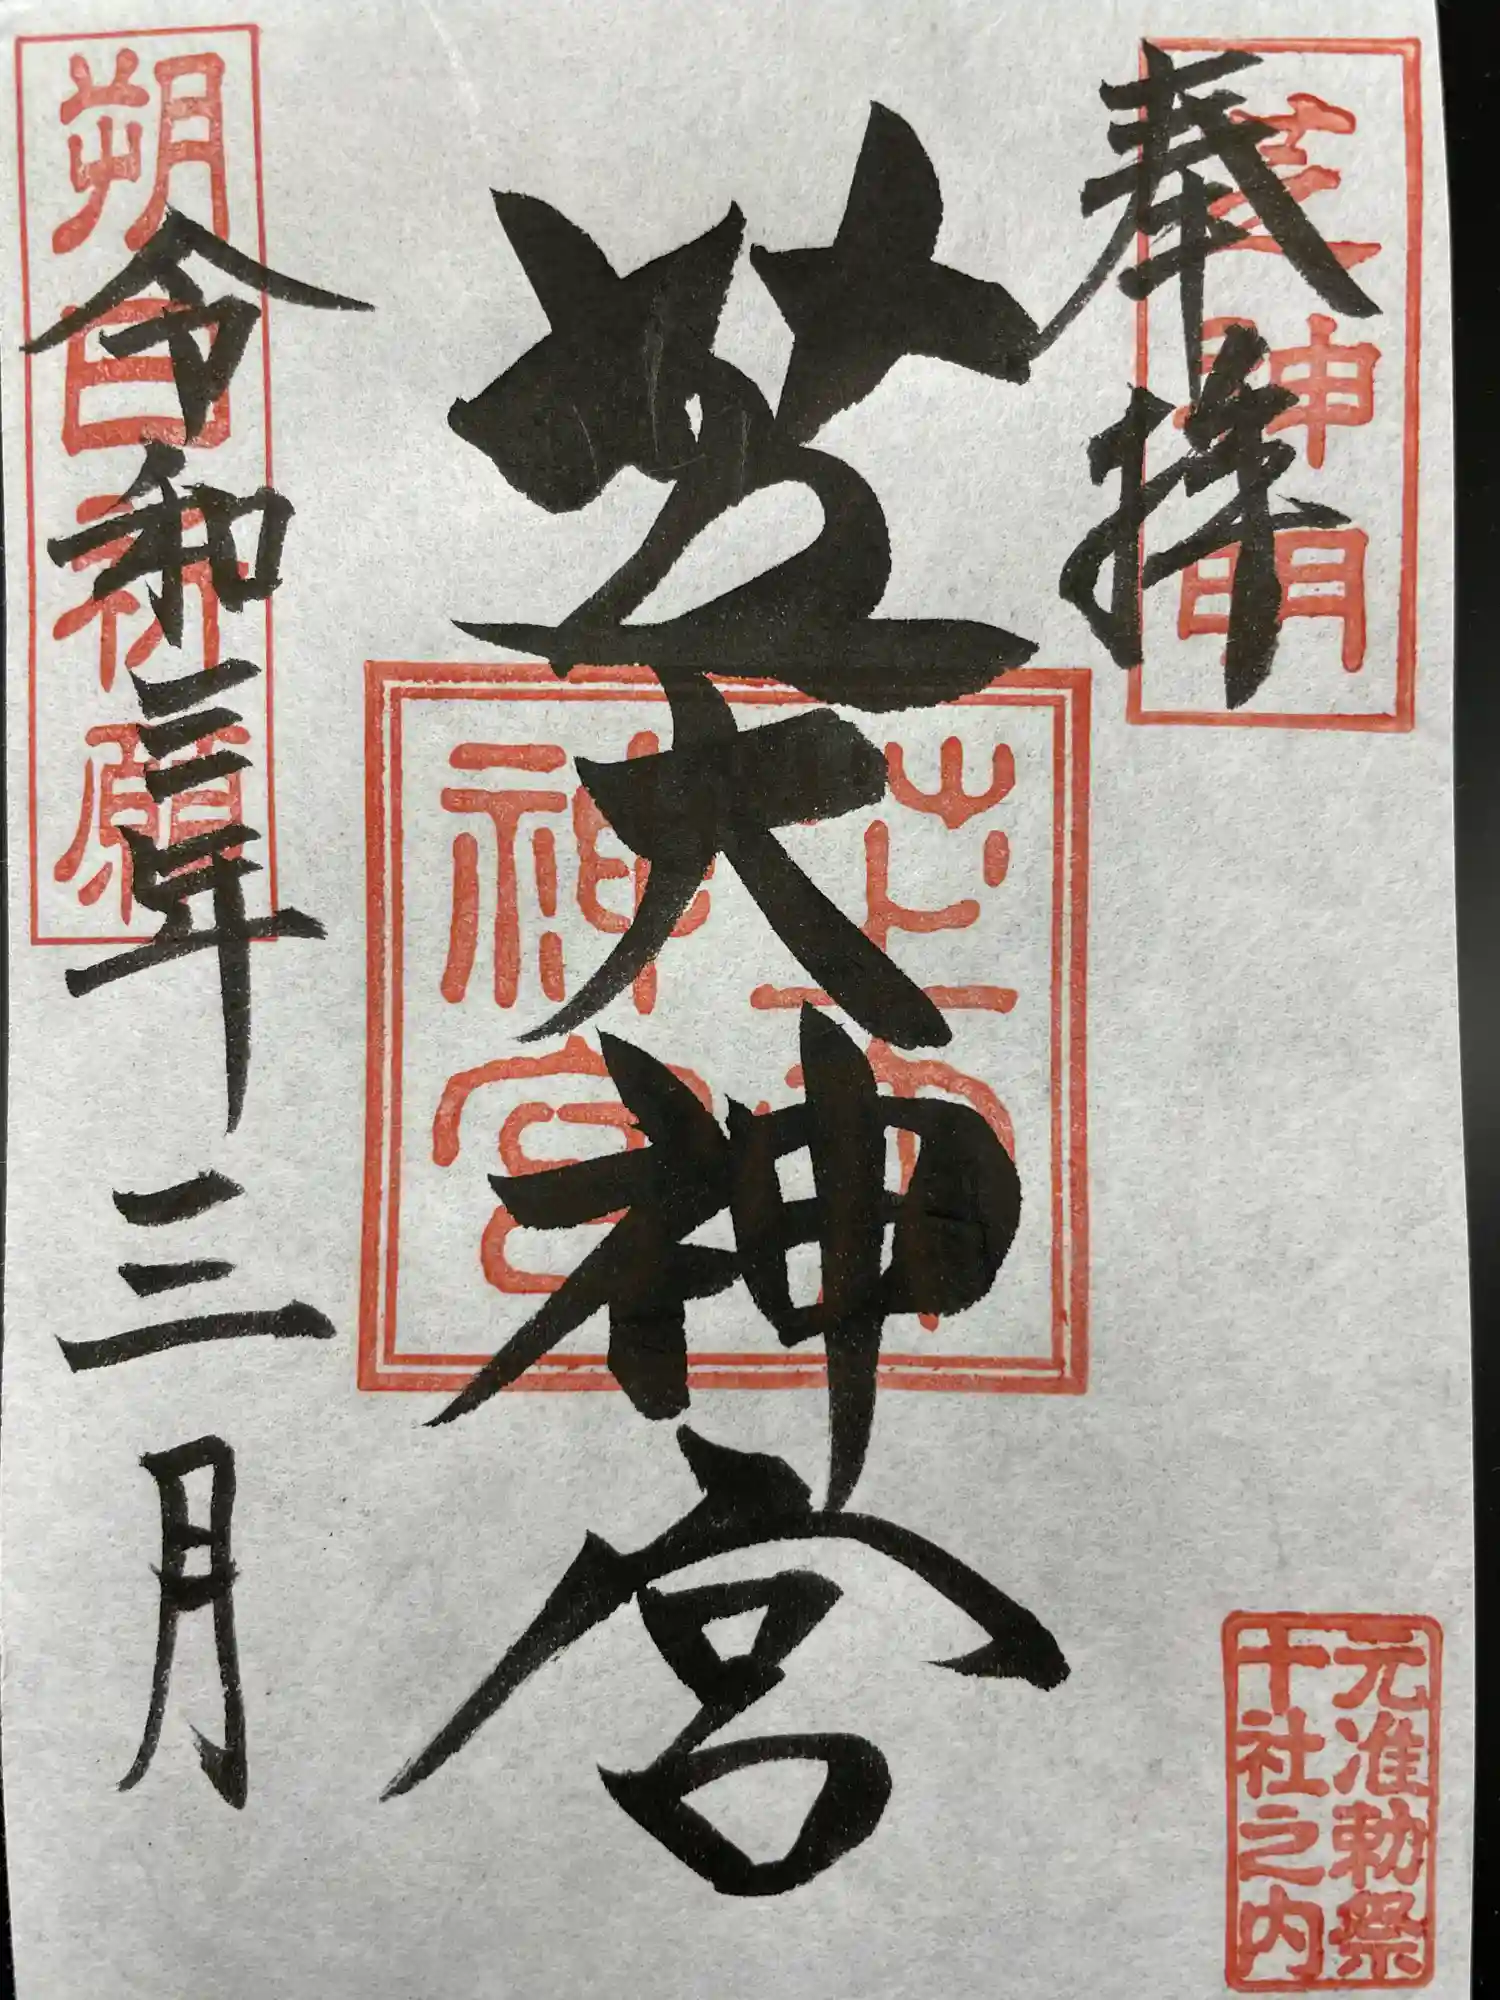 奉拝
芝神明
元准勅祭
十社之内
芝大神宮
芝大
神宮
令和三年三月
朔日祈願